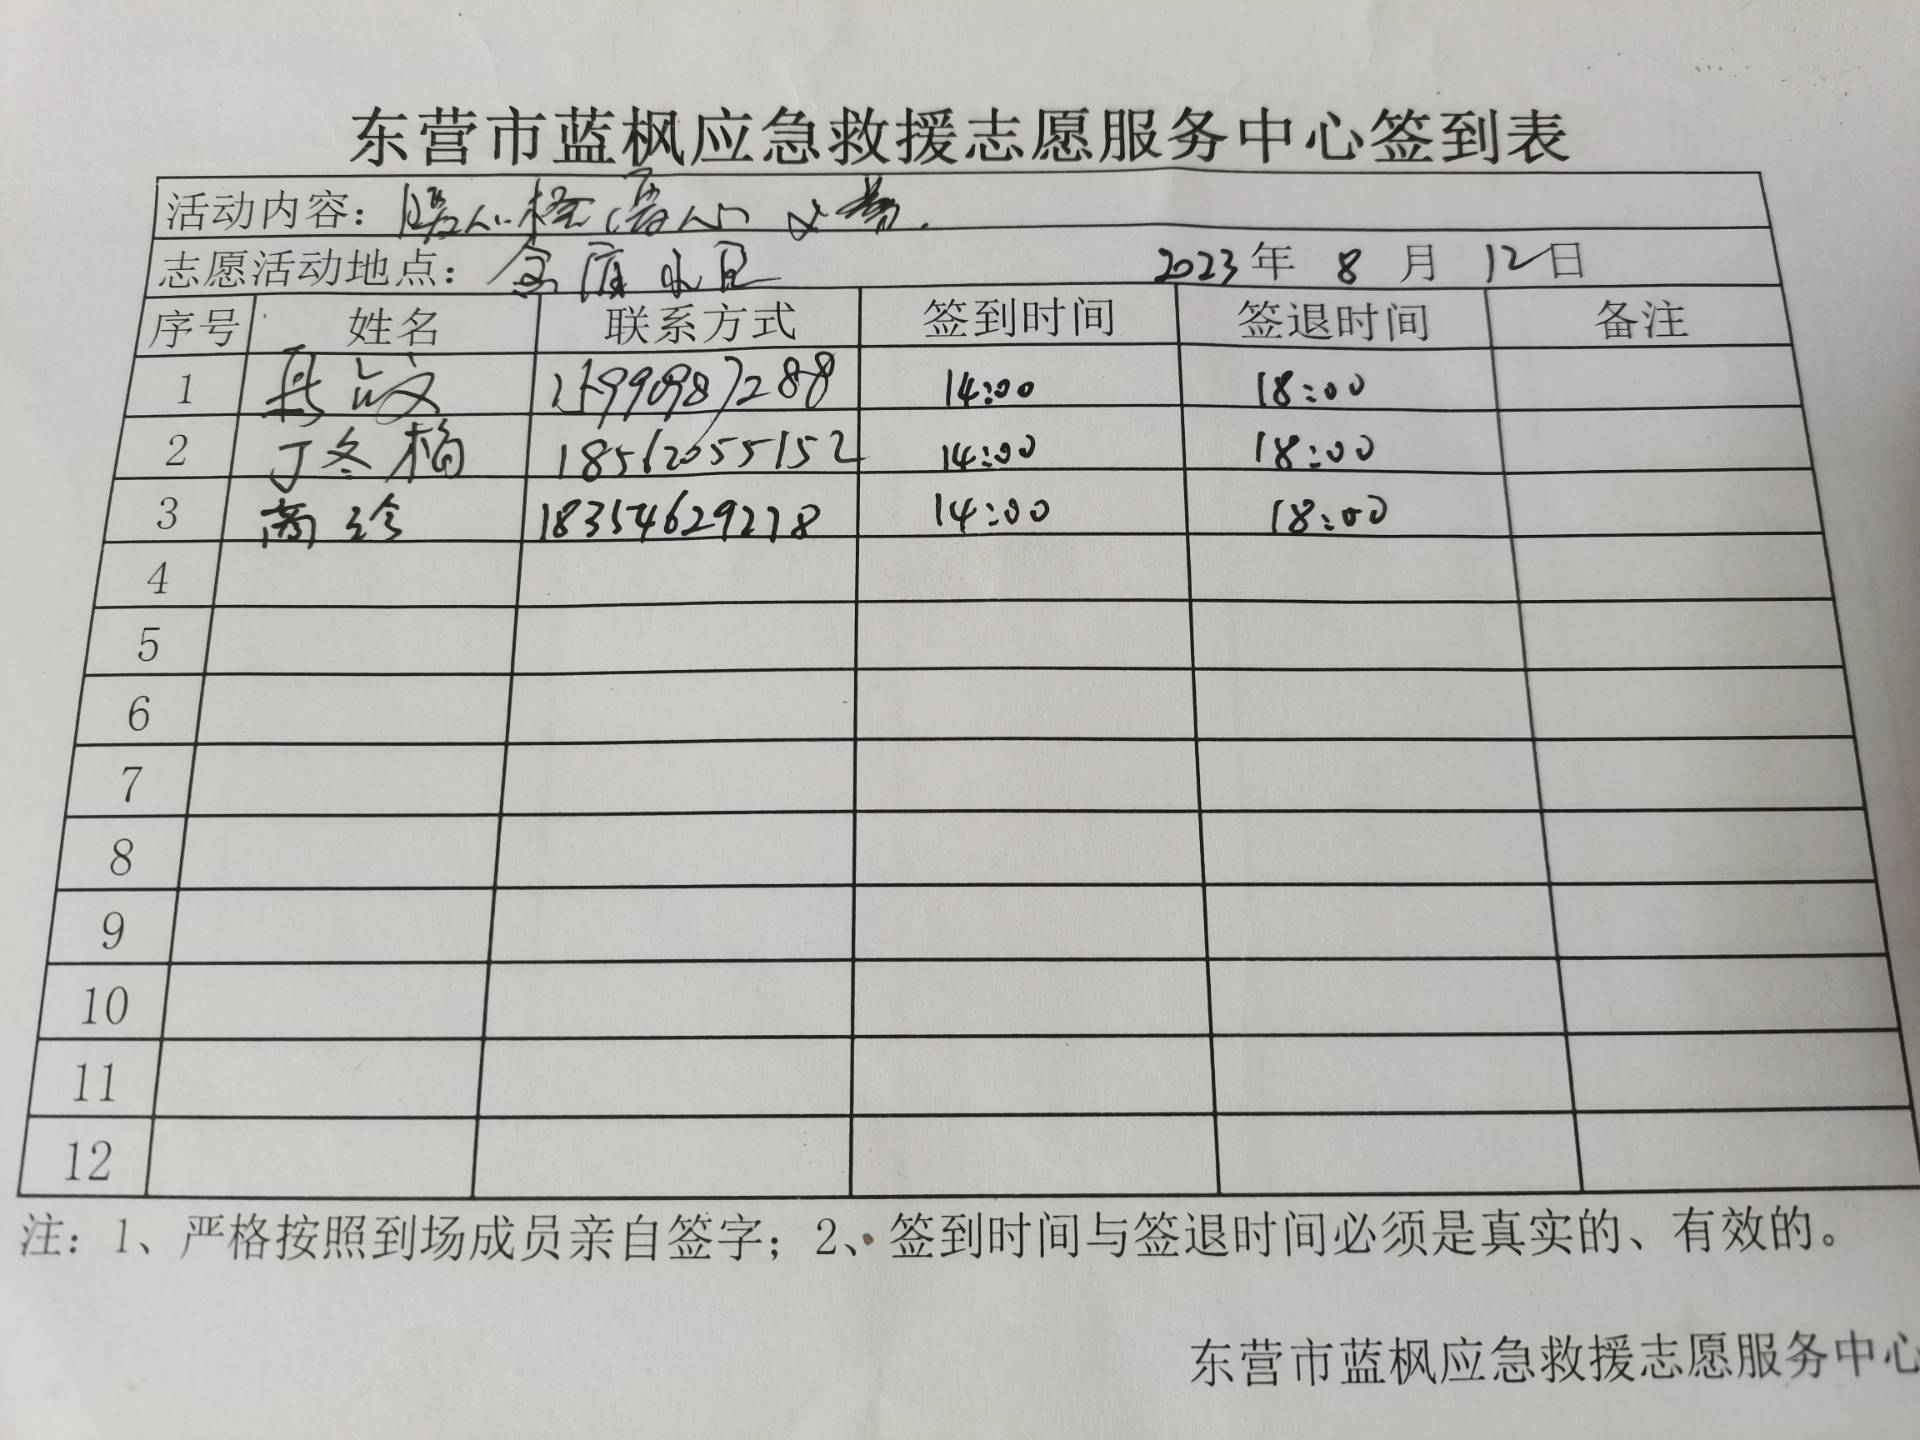 东营市蓝枫应急救援志愿服务中心签到表
活动内容：
志愿活动地点： 2023年 8 月 12日
序号 姓名 联系方式 签到时间 签退时间 备注
1 14:00 18:00
2 丁冬梅 18562055152 14:00 18:00
3 商玲 18354629278 14:00 18:00
4
5
6
7
8
9
10
11
12
注：1、严格按照到场成员亲自签字；2、签到时间与签退时间必须是真实的、有效的。
东营市蓝枫应急救援志愿服务中心